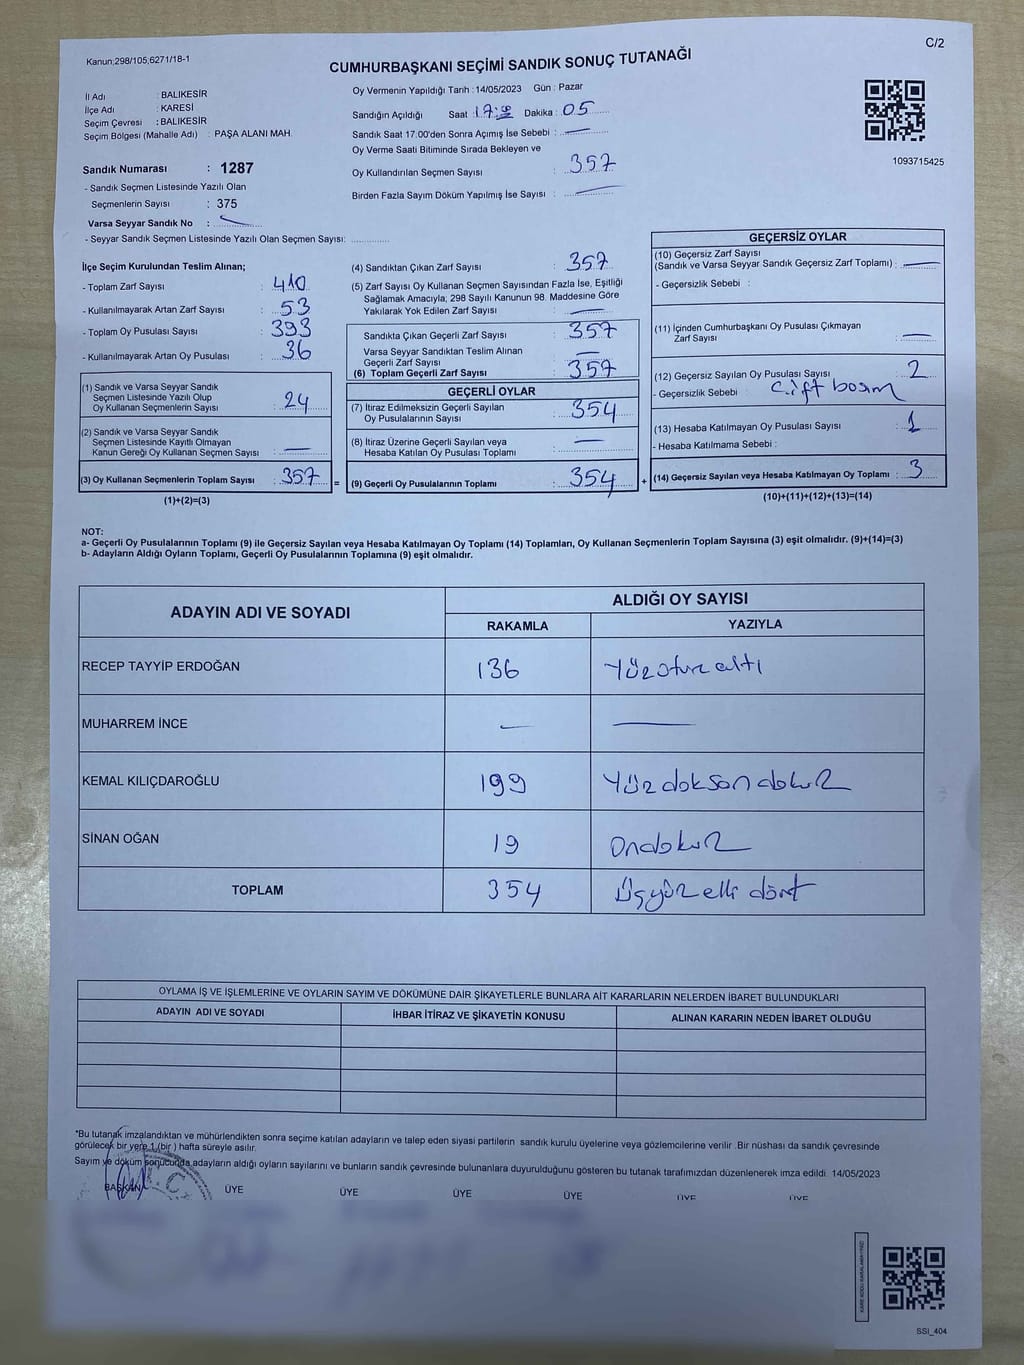 C/2
Kanun;298/105,6271/18-1
CUMHURBAŞKANI SEÇİMİ SANDIK SONUÇ TUTANAĞI
İl Adı : BALIKESİR
İlçe Adı : KARESİ
Seçim Çevresi : BALIKESİR
Seçim Bölgesi (Mahalle Adı) : PAŞA ALANI MAH.
Sandık Numarası : 1287
- Sandık Seçmen Listesinde Yazılı Olan
Seçmenlerin Sayısı : 375
Varsa Seyyar Sandık No :
- Seyyar Sandık Seçmen Listesinde Yazılı Olan Seçmen Sayısı:
Oy Vermenin Yapıldığı Tarih : 14/05/2023 Gün : Pazar
Sandığın Açıldığı Saat : 17:00 Dakika : 05
Sandık Saat 17:00'den Sonra Açımış İse Sebebi : —
Oy Verme Saati Bitiminde Sırada Bekleyen ve
Oy Kullandırılan Seçmen Sayısı : 357
Birden Fazla Sayım Döküm Yapılmış İse Sayısı : —
1093715425
İlçe Seçim Kurulundan Teslim Alınan;
- Toplam Zarf Sayısı : 410
- Kullanılmayarak Artan Zarf Sayısı : 53
- Toplam Oy Pusulası Sayısı : 393
- Kullanılmayarak Artan Oy Pusulası : 36
(1) Sandık ve Varsa Seyyar Sandık
Seçmen Listesinde Yazılı Olup
Oy Kullanan Seçmenlerin Sayısı : 24
(2) Sandık ve Varsa Seyyar Sandık
Seçmen Listesinde Kayıtlı Olmayan
Kanun Gereği Oy Kullanan Seçmen Sayısı : —
(3) Oy Kullanan Seçmenlerin Toplam Sayısı : 357 =
(1)+(2)=(3)
(4) Sandıktan Çıkan Zarf Sayısı : 357
(5) Zarf Sayısı Oy Kullanan Seçmen Sayısından Fazla İse, Eşitliği
Sağlamak Amacıyla; 298 Sayılı Kanunun 98. Maddesine Göre
Yakılarak Yok Edilen Zarf Sayısı : —
Sandıkta Çıkan Geçerli Zarf Sayısı : 357
Varsa Seyyar Sandıktan Teslim Alınan
Geçerli Zarf Sayısı : —
(6) Toplam Geçerli Zarf Sayısı : 357
GEÇERLİ OYLAR
(7) İtiraz Edilmeksizin Geçerli Sayılan
Oy Pusulasının Sayısı : 354
(8) İtiraz Üzerine Geçerli Sayılan veya
Hesaba Katılan Oy Pusulası Toplamı : —
(9) Geçerli Oy Pusulalarının Toplamı : 354 +
GEÇERSİZ OYLAR
(10) Geçersiz Zarf Sayısı
(Sandık ve Varsa Seyyar Sandık Geçersiz Zarf Toplamı) : —
- Geçersizlik Sebebi :
(11) İçinden Cumhurbaşkanı Oy Pusulası Çıkmayan
Zarf Sayısı : —
(12) Geçersiz Sayılan Oy Pusulası Sayısı : 2
- Geçersizlik Sebebi : Çift basım
(13) Hesaba Katılmayan Oy Pusulası Sayısı : 1
- Hesaba Katılmama Sebebi :
(14) Geçersiz Sayılan veya Hesaba Katılmayan Oy Toplamı : 3
(10)+(11)+(12)+(13)=(14)
NOT:
a- Geçerli Oy Pusulalarının Toplamı (9) ile Geçersiz Sayılan veya Hesaba Katılmayan Oy Toplamı (14) Toplamları, Oy Kullanan Seçmenlerin Toplam Sayısına (3) eşit olmalıdır. (9)+(14)=(3)
b- Adayların Aldığı Oyların Toplamı, Geçerli Oy Pusulalarının Toplamına (9) eşit olmalıdır.
ADAYIN ADI VE SOYADI ALDIĞI OY SAYISI
RAKAMLA YAZIYLA
RECEP TAYYİP ERDOĞAN 136 Yüzotuzaltı
MUHARREM İNCE — —
KEMAL KILIÇDAROĞLU 199 Yüzdoksandokuz
SİNAN OĞAN 19 Ondokuz
TOPLAM 354 Üçyüzellidört
OYLAMA İŞ VE İŞLEMLERİNE VE OYLARIN SAYIM VE DÖKÜMÜNE DAİR ŞİKAYETLERLE BUNLARA AİT KARARLARIN NELERDEN İBARET BULUNDUKLARI
ADAYIN ADI VE SOYADI İHBAR İTİRAZ VE ŞİKAYETİN KONUSU ALINAN KARARIN NEDEN İBARET OLDUĞU
*Bu tutanak imzalandıktan ve mühürlendikten sonra seçime katılan adayların ve talep eden siyasi partilerin sandık kurulu üyelerine veya gözlemcilerine verilir .Bir nüshası da sandık çevresinde
görülecek bir yere 1 (bir ) hafta süreyle asılır.
Sayım ve döküm sonucunda adayların aldığı oyların sayılarını ve bunların sandık çevresinde bulunanlara duyurulduğunu gösteren bu tutanak tarafımızdan düzenlenerek imza edildi. 14/05/2023
BAŞKAN ÜYE ÜYE ÜYE ÜYE ÜYE ÜYE
SSI_404